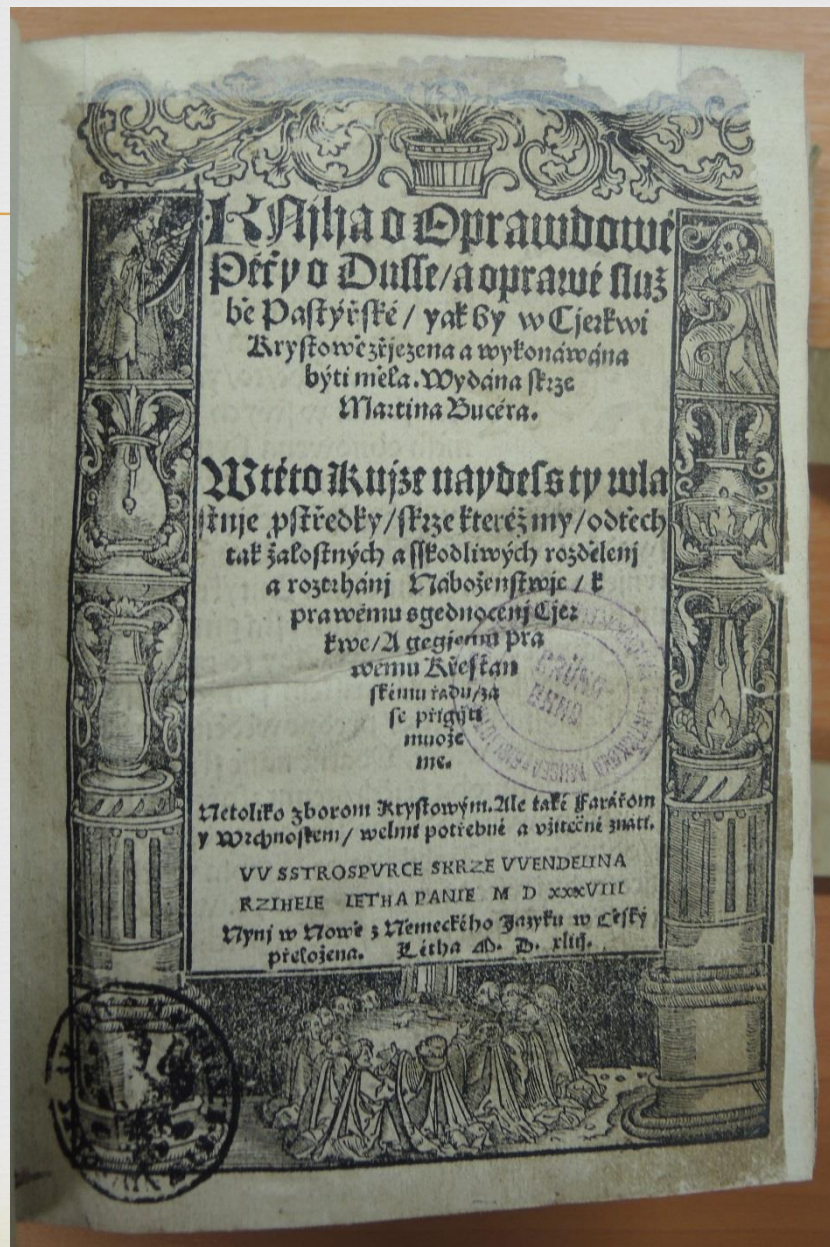 KNijha o Oprawdowé
Péčy o Dusse/a oprawé služ
bě Pastýřské / yak by w Cjerkwi
Krystowě zřjezena a wykonáwána
býti měla. Wydána skrze
Martina Bucéra.
W této Knjze naydess ty wla
stnje pstředky/skrze kteréž my/odtěch
tak žalostných a sskodliwých rozdělenj
a roztrhánj Náboženstwje / k
prawému sgednocenj Cjer
kwe/A gegjemu pra
wému Křestian
skému řádu/za
se přigjti
muože
me.
Netoliko zborom Krystowým. Ale také Farářom
y Wrchnostem/ welmi potřebné a vžitečné znáti.
VV SSTROSPVRCE SKRZE VVENDELINA
RZIHELE LETHA PANIE M D XXXVIII
Nynj w Nowě z Německého Jazyku w Cěský
přeložena. Létha M. D. xliij.